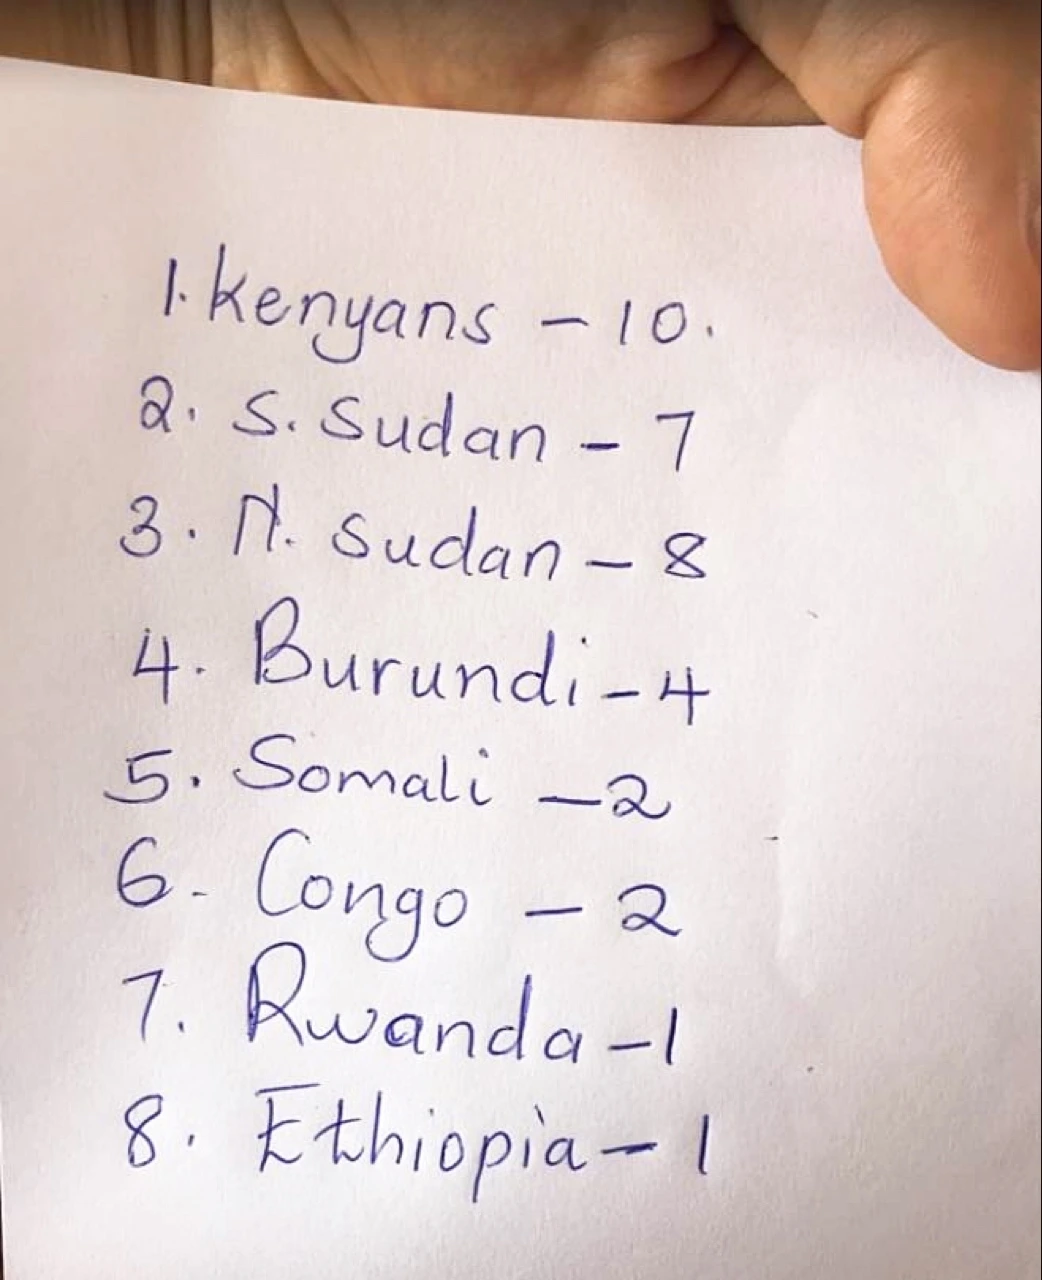 1. Kenyans - 10.
2. S. Sudan - 7
3. N. Sudan - 8
4. Burundi - 4
5. Somali - 2
6. Congo - 2
7. Rwanda - 1
8. Ethiopia - 1